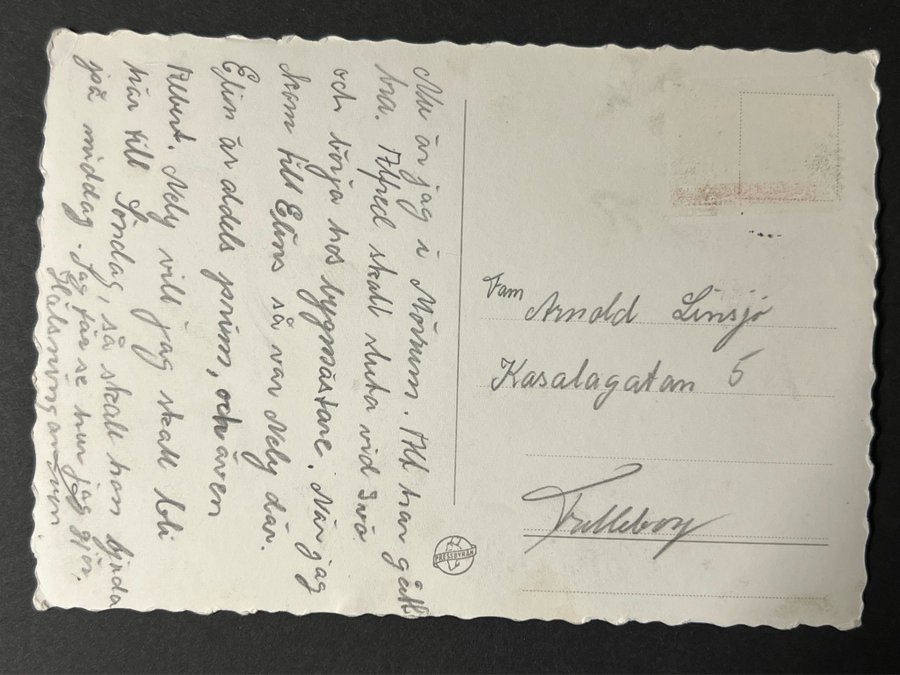 Nu är jag i Mörrum. Allt har gått
bra. Alfred skall sluta vid Ivö
och börja hos bygmästare. När jag
kom till Elins så var Nely där.
Elin är aldels prim, och även
Albert. Nely vill jag skall bli
här till Söndag, så skall hon bjuda
på middag. Jag får se hur jag gjör.
Hälsningar
Fam Arnold Linsjö
Kasalagatan 5
Trelleborg
PRESSBYRÅN